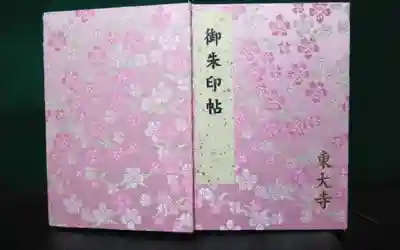 御朱印帖
東大寺